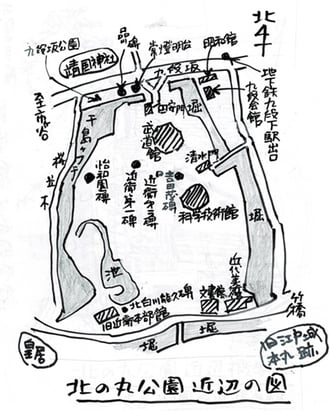 北
九段坂公園
品川碑
常燈明台
昭和館
靖国神社
九段坂
九段会館
地下鉄九段下駅出口
至市ヶ谷
田安門
堀
千鳥ヶ淵
武道館
清水門
桜並木
怡和園碑
近衛第一碑
近衛第二碑
吉田茂碑
科学技術館
堀
池
北白川能久碑
旧近衛本部館
文書館
近代美術
竹橋
皇居
堀
堀
旧江戸城
本丸跡
北の丸公園近辺の図